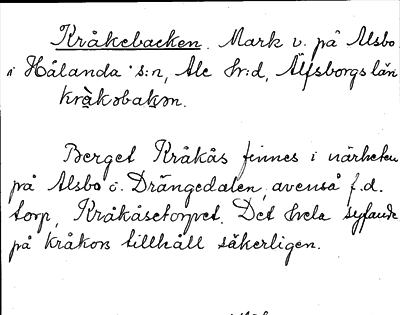 Kråkebacken. Mark v. på Alsbo
i Hålanda s:n, Ale hr:d, Älfsborgs län
kràkobakən.
Berget Kråkås finnes i närheten
på Alsbo o. Drängedalen, avenså f.d.
torp, Kråkåsetorpet. Det hela syftande
på kråkors tillhåll säkerligen.